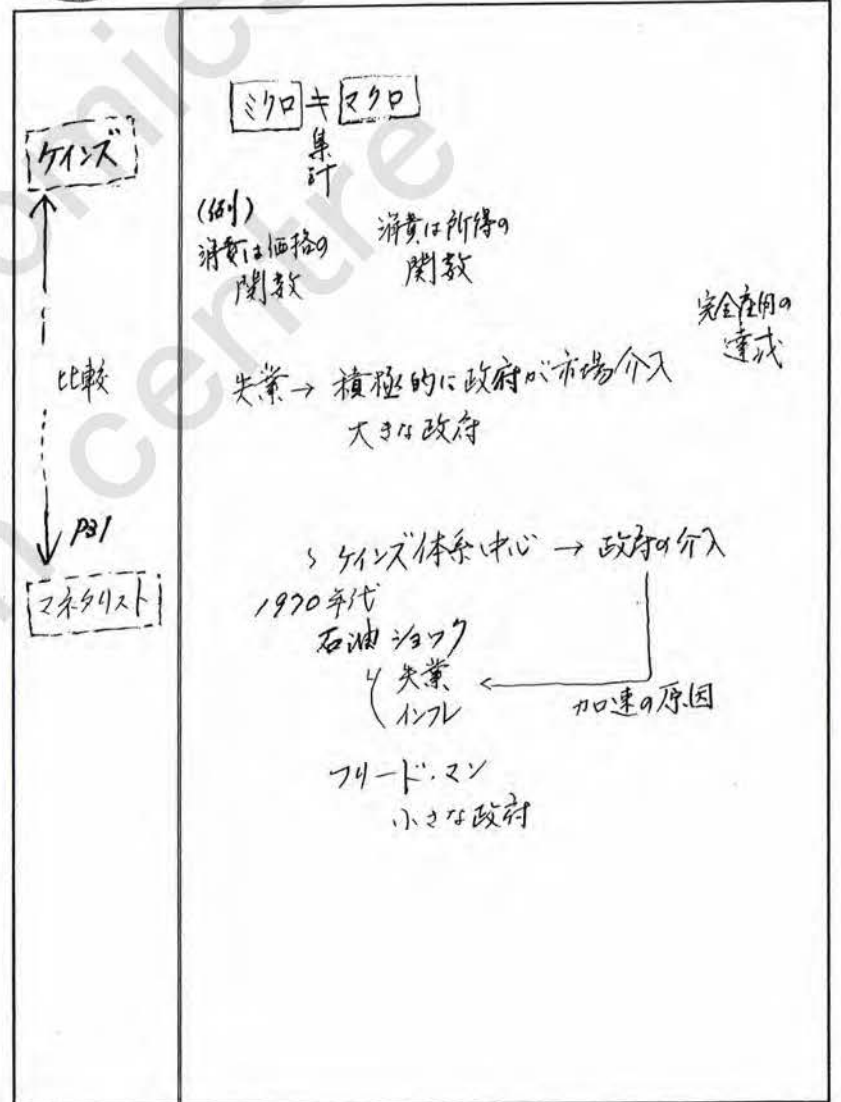 ケインズ
比較
P31
マネタリスト
ミクロ ≠ マクロ
集計
(例)
消費は価格の
関数
消費は所得の
関数
完全雇用の
達成
失業→ 積極的に政府が市場介入
大きな政府
〜 ケインズ体系中心 → 政府の介入
1970年代
石油ショック
失業
インフレ
加速の原因
フリード・マン
小さな政府
omics
centre